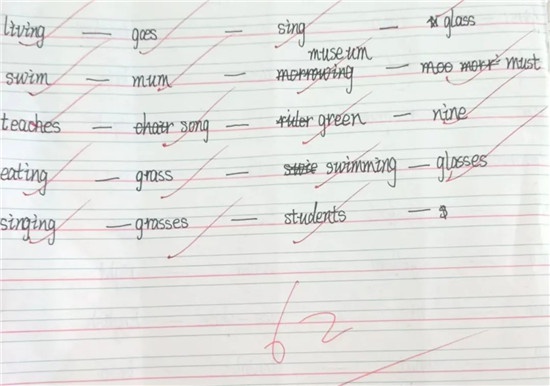 living — goes — sing — glass
museum
swim — mum — — must
teaches — song — green — nine
eating — grass — swimming — glasses
singing — grasses — students — s
62